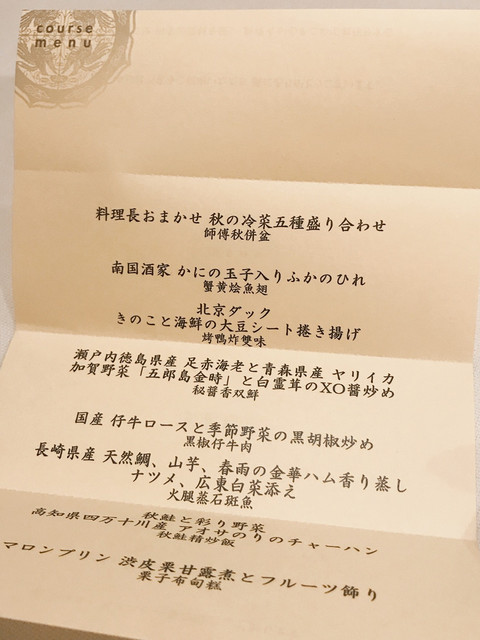 course
menu
料理長おまかせ 秋の冷菜五種盛り合わせ
師傅秋併盆
南国酒家 かにの玉子入りふかのひれ
蟹黄烩魚翅
北京ダック
きのこと海鮮の大豆シート捲き揚げ
烤鴨炸雙味
瀬戸内徳島県産 足赤海老と青森県産 ヤリイカ
加賀野菜「五郎島金時」と白霊茸のXO醤炒め
秘醤香双鮮
国産 仔牛ロースと季節野菜の黒胡椒炒め
黒椒仔牛肉
長崎県産 天然鯛、山芋、春雨の金華ハム香り蒸し
ナツメ、広東白菜添え
火腿蒸石斑魚
秋鮭と彩り野菜
高知県四万十川産 アオサのりのチャーハン
秋鮭精炒飯
マロンプリン 渋皮栗甘露煮とフルーツ飾り
栗子布甸糕